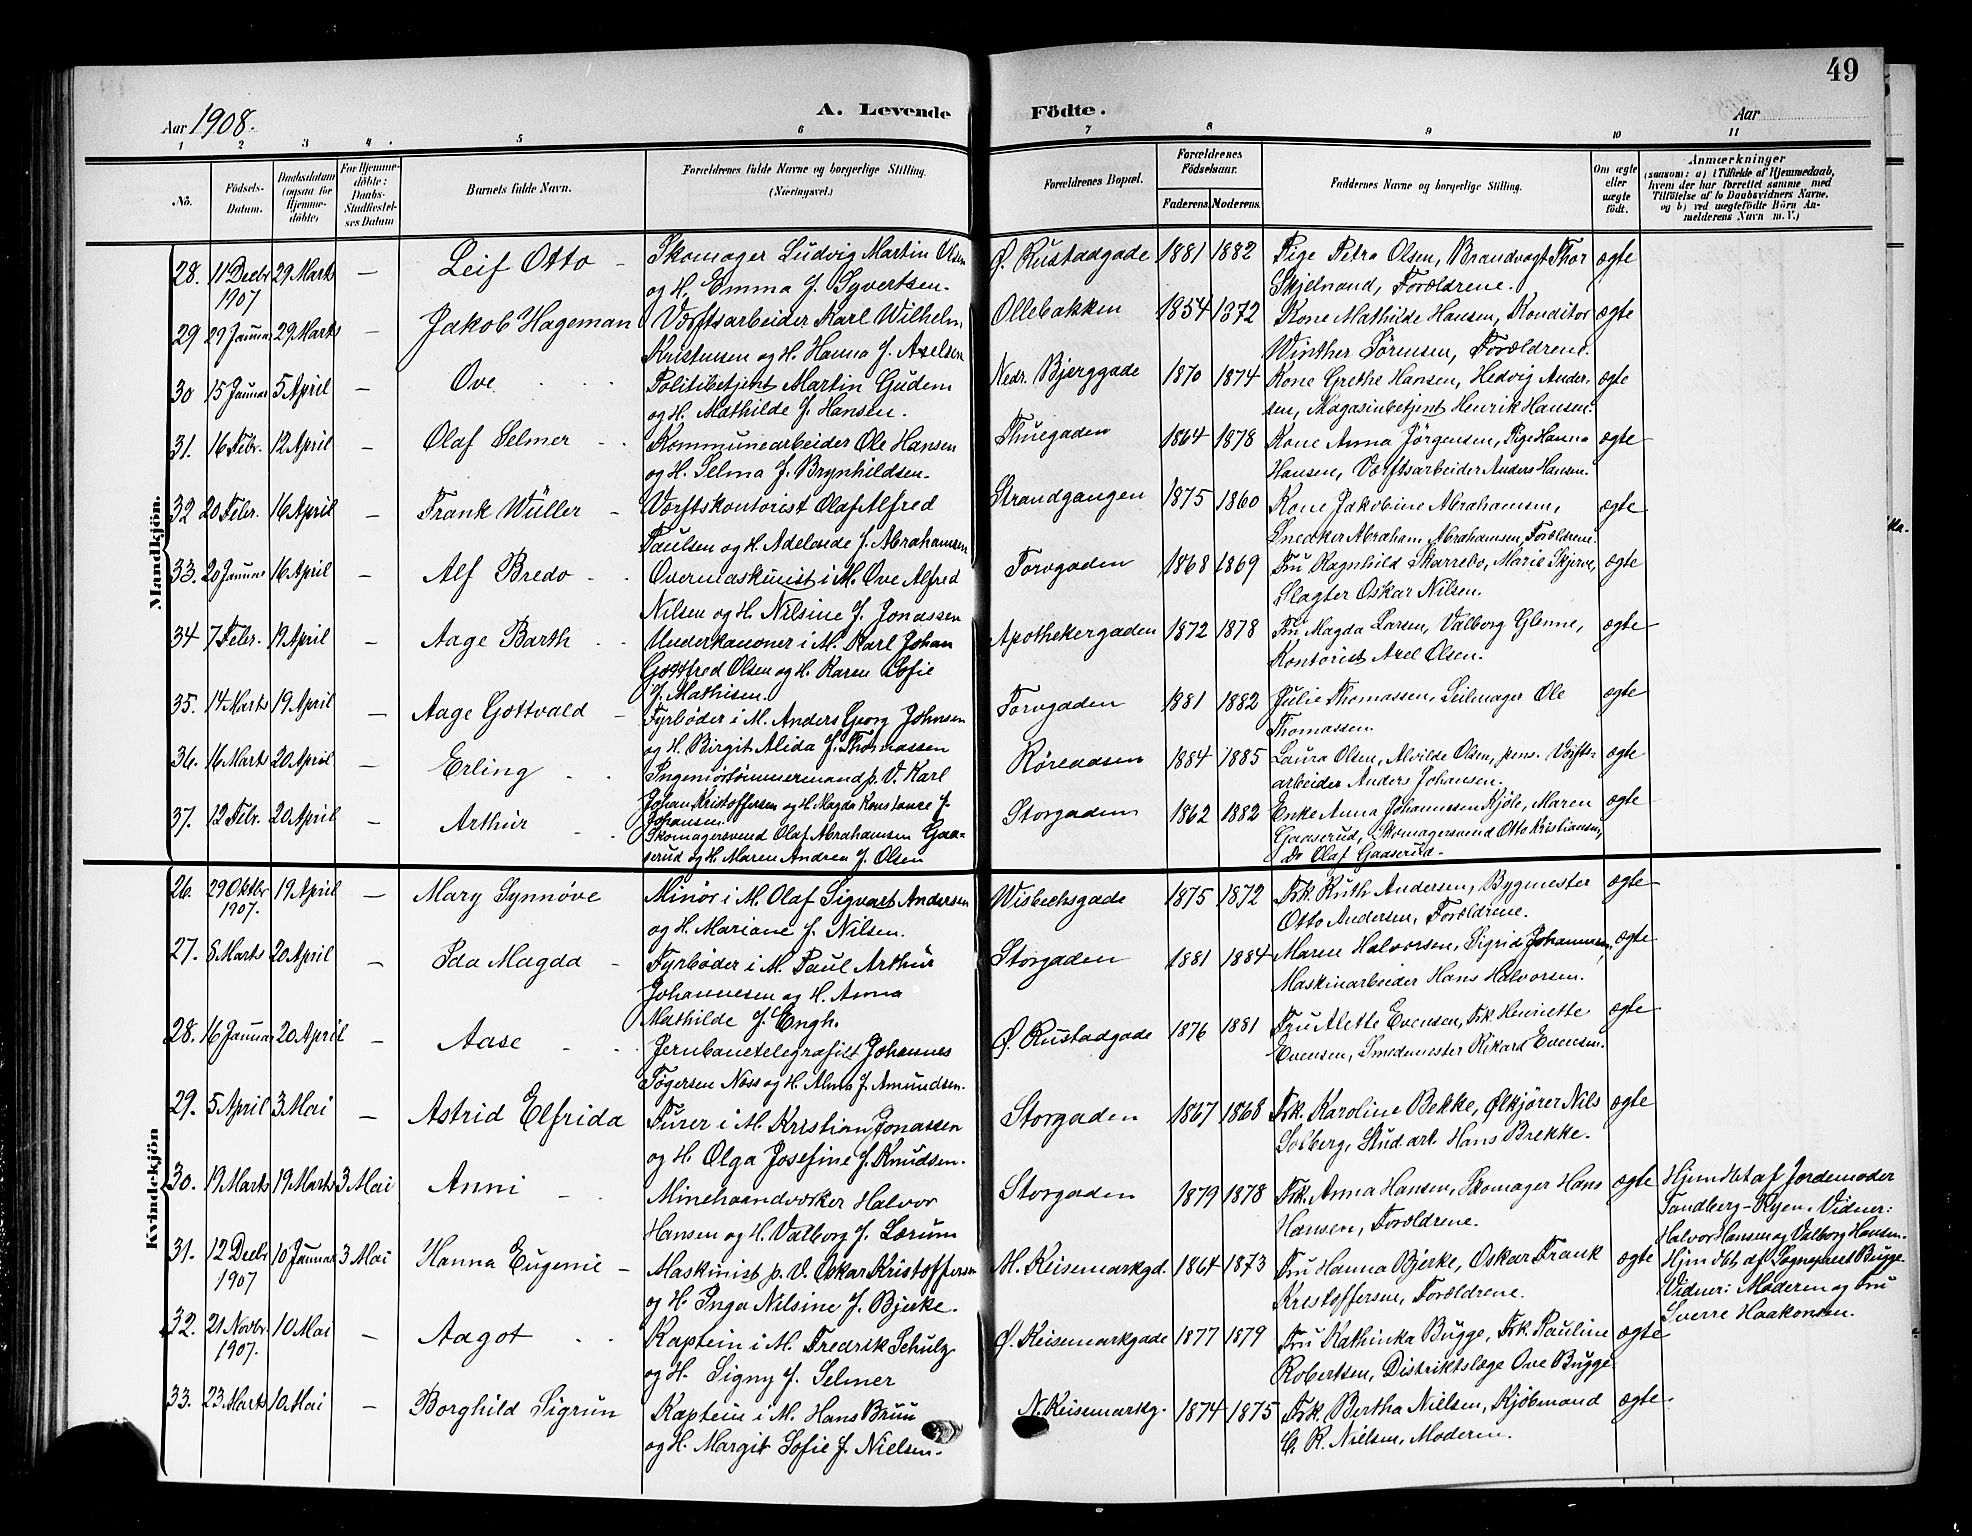 49
Aar 1908.
A. Levende Födte.
Aar
1 2 3 4 5 6 7 8 9 10 11
No.
Födsels-Datum.
Daabsdatum (ogsaa for Hjemmedöbte)
For Hjemmedöbte: Daabs-Stadfæstelses Datum
Barnets fulde Navn.
Forældrenes fulde Navne og borgerlige Stilling. (Næringsvei.)
Forældrenes Bopæl.
Forældrenes Födselsaar.
Faderens. Moderens.
Faddernes Navne og borgerlige Stilling.
Om ægte eller uægte födt.
Anmærkninger
(saasom: a) i Tilfælde af Hjemmedaab, hvem der har forrettet samme, med Tilföielse af to Daabsvidners Navne, og b) ved uægtefödte Börn Anmelderens Navn m. V.)
Mandkjön.
28. 11 Decbr 1907 29 Marts — Leif Otto – Skomager Ludvig Martin Olsen Ø. Rustadgade 1881 1882 Pige Petra Olsen, Brandvagt Thor ægte
og H. Emma f. Syvertsen. Skjelnand, Forældrene.
29 29 Januar 29 Marts — Jakob Hageman Værftsarbeider Karl Wilhelm Ollebakken 1854 1872 Kone Mathilde Hansen, Konditor ægte
Kristensen og H. Hanna f. Axelsen Winther Sørensen, Forældrene.
30 15 Januar 5 April — Ove Politibetjent Martin Gudem Nedr. Bjerggade 1870 1874 Kone Grethe Hansen, Hedvig Ander- ægte
og H. Mathilde f. Hansen. sen, Magasinbetjent Henrik Hansen.
31. 16 Febr. 12 April — Olaf Selmer Kommunearbeider Ole Hansen Thuegaden 1864 1878 Kone Anna Jörgensen, Pige Hanna ægte
og H. Selma f. Brynhildsen. Hansen, Værftsarbeider Anders Hansen.
32 20 Febr. 16 April — Frank Wüller – Værftskontorist Olaf Alfred Strandgangen 1875 1860 Kone Jakobine Abrahamsen, ægte
Paulsen og H. Adelaide f. Abrahamsen Snedker Abraham Abrahamsen, Forældrene.
33. 20 Januar 16 April — Alf Bredo Overmaskinist i M. Ove Alfred Torvgaden 1868 1869 Fru Ragnhild Skarrebo, Marie Skjerve, ægte
Nilsen og H. Nilsine f. Jonassen Slagter Oskar Nilsen.
34 7 Febr. 17 April — Aage Barth Underkanoner i M. Karl Johan Apothekergaden 1872 1878 Fru Magda Larsen, Valborg Glenne, ægte
Gottfred Olsen og H. Karen Sofie Kontorist Axel Olsen.
f. Mathisen.
35. 14 Marts 19 April — Aage Gottvald – Fyrbøder i M. Anders Georg Johnsen Torvgaden 1881 1882 Julie Thomassen, Seilmager Ole ægte
og H. Birgit Alida f. Thomassen Thomassen.
36. 16 Marts 20 April — Erling Ingeniørtømmermand p. V. Karl Røreaasen 1884 1885 Laura Olsen, Alvilde Olsen, pens. Værfts- ægte
Johan Kristoffersen og H. Magda Konstance f. arbeider Anders Johansen.
Johansen.
37. 12 Febr. 20 April — Arthur Skomagersvend Olaf Abrahamsen Gaa- Storgaden 1862 1882 Enke Anna Johannessen Kjöle, Maren ægte
serud og H. Maren Andrea f. Olsen Gaaserud, Skomagersvend Otto Kristiansen,
Do Olaf Gaaserud.
Kvindekjön
26. 29 Oktbr 1907. 19 April — Mary Synnøve Minør i M. Olaf Sigvart Andersen Wisbechsgade 1875 1872 Frk. Ruth Andersen, Bygmester ægte
og H. Mariane f. Nilsen. Otto Andersen, Forældrene.
27. 8 Marts 20 April — Ida Magda – Fyrbøder i M. Paul Arthur Storgaden 1881 1884 Maren Halvorsen, Sigrid Johannesen, ægte
Johannesen og H. Anna Maskinarbeider Hans Halvorsen.
Mathilde f. Engh.
28. 16 Januar 20 April — Aase Jernbanetelegrafist Johannes Ø. Rustadgade 1876 1881 Fru Alette Evensen, Frk. Henriette ægte
Tøgersen Næss og H. Alma f. Amundsen. Evensen, Smedemester Rikard Evensen.
29. 5 April 3 Mai — Astrid Elfrida Furer i M. Kristian Jonassen Storgaden 1867 1868 Frk. Karoline Bekke, Ølkjører Nils ægte
og H. Olga Josefine f. Knudsen. Solberg, Stud.art. Hans Brekke.
30. 19 Marts 19 Marts 3 Mai Anni – Minehaandværker Halvor Storgaden 1879 1878 Frk. Anna Hansen, Skomager Hans ægte Hjemdbt af Jordemoder
Hansen og H. Valborg f. Lærum Hansen, Forældrene. Tandberg-Ryen. Vidner:
Halvor Hansen og Valborg Hansen.
31. 12 Decbr 1907 10 Januar 3 Mai Hanna Eugenie – Maskinist p. V. Oskar Kristoffersen M. Keisemarkgd. 1864 1873 Fru Hanna Bjerke, Oskar Frank ægte Hjemdbt af Sogneprest Bugge.
og H. Inga Nilsine f. Bjerke. Kristoffersen, Forældrene. Vidner: Moderen og Fru
Sverre Haakonsen.
32. 21 Novbr 1907. 10 Mai — Aagot Kaptein i M. Fredrik Schulz Ø. Keisemarkgade 1877 1879 Fru Kathinka Bugge, Frk. Pauline ægte
og H. Signy f. Selmer Robertsen, Distriktslæge Ove Bugge
33. 23 Marts 10 Mai — Borghild Sigrun Kaptein i M. Hans Bruu N. Keisemarkg. 1874 1875 Frk. Bertha Nielsen, Kjøbmand ægte
og H. Margit Sofie f. Nielsen. C. R. Nielsen, Moderen.